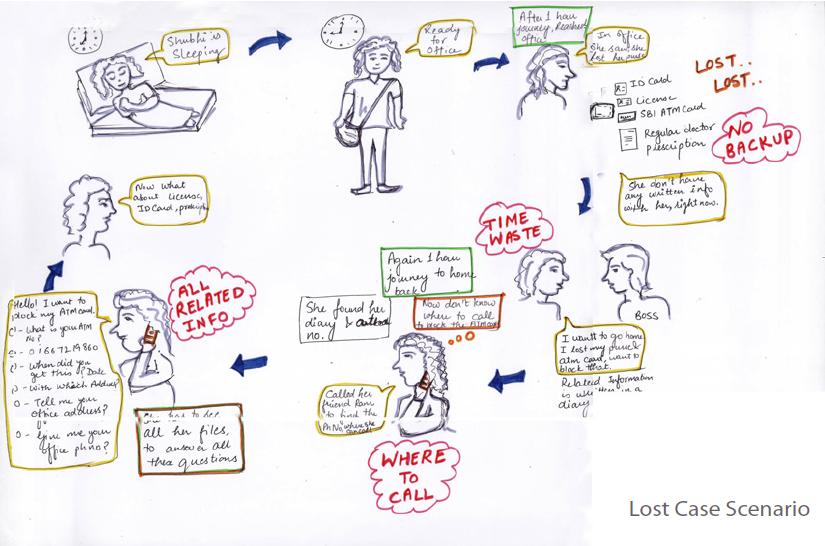 Shubhi is
Sleeping
Ready
for
office
After 1 hour
journey, Reaches
office
In office
She saw, she
lost her purse
LOST..
LOST..
ID Card
License
SBI ATM Card
Regular doctor
prescription
NO
BACKUP
She don't have
any written info
with her, right now.
TIME
WASTE
BOSS
I want to go home
I lost my purse
atm card, want to
block that.
Related Information
is in a
diary
Again 1 hour
journey to home
back
She found her
diary &
no.
Now don't know
where to call
to block the ATM card
Called her
friend Ram
to find the
Ph No. where she
WHERE
TO
CALL
ALL
RELATED
INFO
Hello! I want to
block my ATM card.
- What is your ATM
No?
- 01667219860
- When did you
get this? Date
- With which Address?
- Tell me your
office address?
- Give me your
office ph no?
She has to see
all her files,
to answer all
these questions
Now what
about License,
ID Card,
Lost Case Scenario